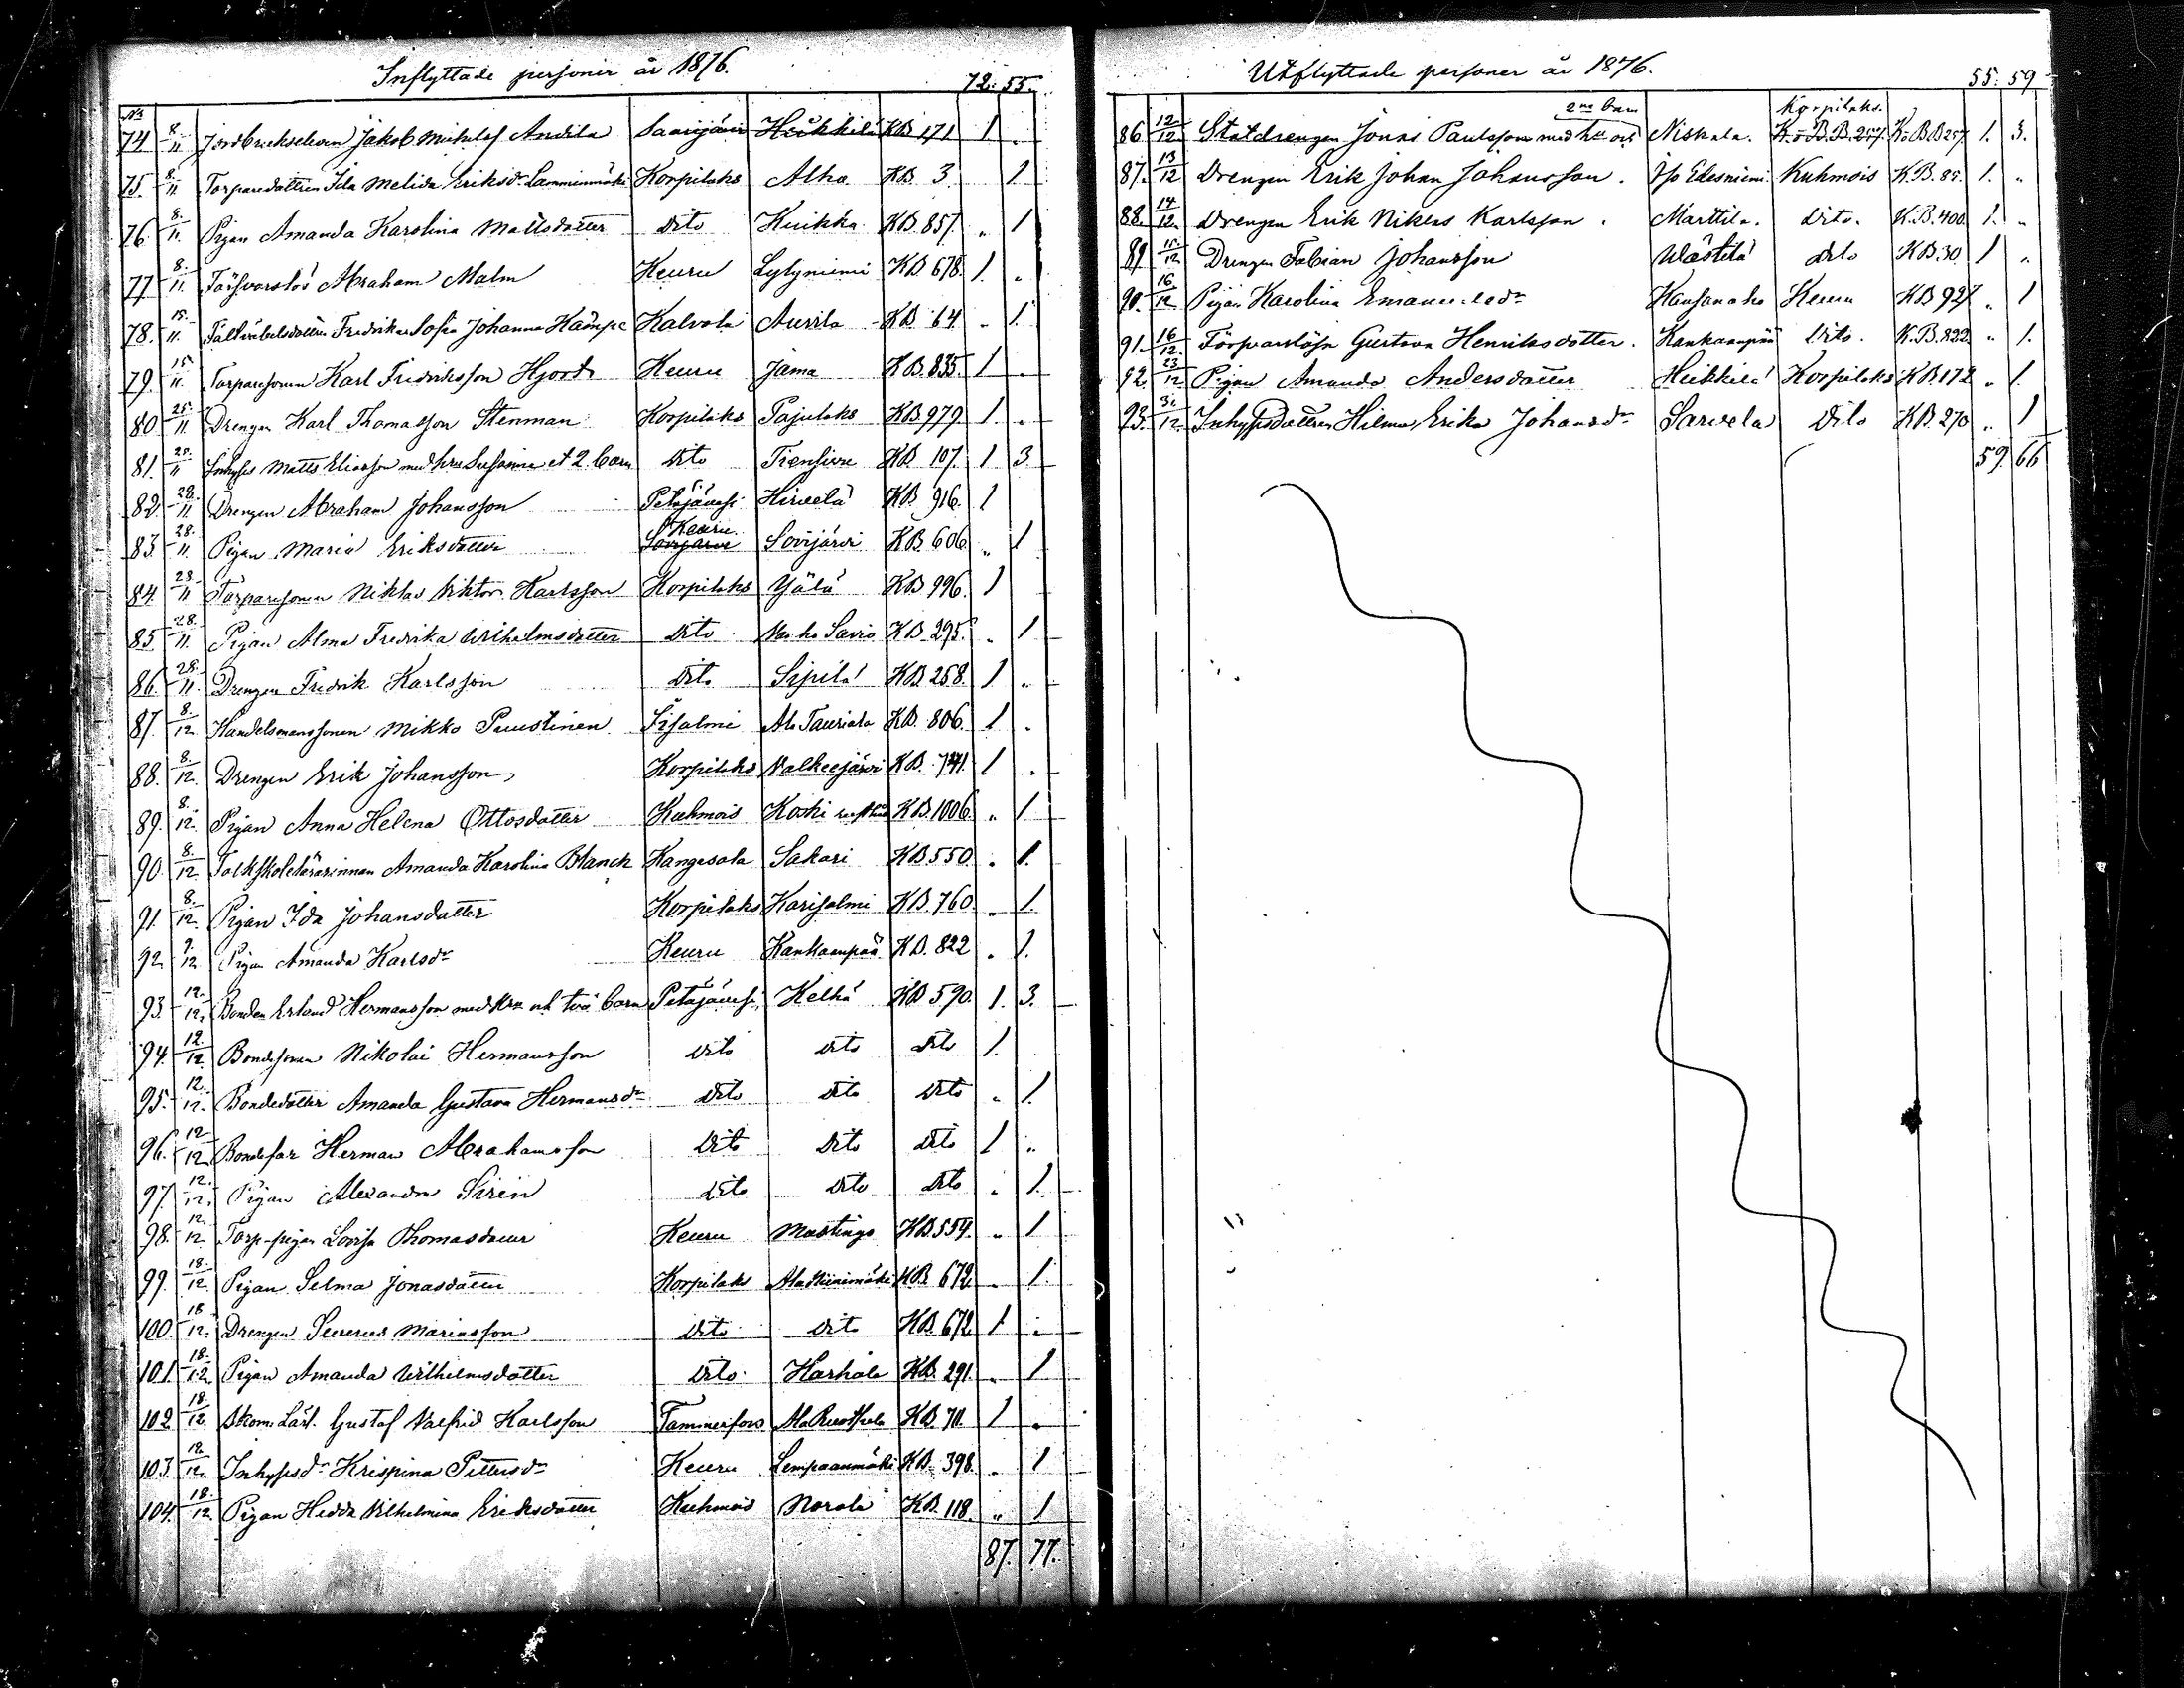 Inflyttade personer år 1876.
72. 55.
No
74 8/11 Jordbrukseleven Jakob Mikulef Andila Saarijärvi Heikkilä KB 171 1 .
75. 8/11 Torparedottren Ida Melida Eriksdr Lammenmäki Korpilaks Alho KB 3 1.
76. 8/11. Pigan Amanda Karolina Mattsdotter dito Kuikka KB 857. „ 1
77 8/11. Försvarslös Abraham Malm Keuru Lylyniemi KB 678. 1. „
78. 15/11. Fältväbelsdottren Fredrika Sofia Johanna Kämpe Kalvola Aurila KB 64 „ 1.
79. 15/11. Torparesonen Karl Fredriksson Hjort Keuru Jama KB. 835. 1 .
80 25/11 Drengen Karl Thomasson Stenman Korpilaks Pajulaks KB 979. 1. .
81. 25/11 Inhyses Matts Eliasson med hru Susanna et 2. barn dito Tiensivu KB 107. 1 3
82. 28/11 Drengen Abraham Johansson Petäjävesi Hirvelä KB 916. 1
83 28/11. Pigan Maria Eriksdotter Keuru Sovijärvi KB. 606. „ 1
84. 28/11 Torparesonen Niklas Viktor Karlsson Korpilaks Yälä KB 996. 1
85 28/11. Pigan Alma Fredrika Wilhelmsdotter dito Savio KB. 295. „ 1
86. 28/11. Drengen Fredrik Karlsson dito Sipilä KB. 258. 1 „
87. 8/12 Handelsmanssonen Mikko Puustinen Iisalmi Ala Tauriala KB. 806. 1 .
88. 8/12. Drengen Erik Johansson Korpilaks Valkeejärvi KB. 741 1 .
89. 8/12. Pigan Anna Helena Ottosdotter Kuhmois Koski KB. 1006. „ 1
90. 8/12. Folkskolelärarinnan Amanda Karolina Blanck Kangasala Sakari KB 550. „ 1.
91. 8/12. Pigan Ida Johansdotter Korpilaks Karisalmi KB. 760 „ 1.
92. 9/12. Pigan Amanda Karlsdr Keuru Kankaanpää KB. 822 „ 1.
93. 12/12. Bonden Erland Hermansson med hru och två barn Petäjävesi Kelhä KB 590. 1. 3.
94. 12/12. Bondesonen Nikolai Hermansson dito dito dito 1.
95. 12/12. Bondedotter Amanda Gustava Hermansdr dito dito dito „ 1.
96. 12/12. Bondefar Herman Abrahamsson dito dito dito 1 „
97. 12/12. Pigan Alexandra Siren dito dito dito „ 1.
98. 12/12. Torp-pigan Lovisa Thomasdotter Keuru Mastings KB. 554. „ 1
99. 18/12 Pigan Selma Jonasdotter Korpilaks KB. 672 „ 1.
100. 18/12. Drengen Severus Mariasson dito dito KB. 672 1 „
101. 18/12. Pigan Amanda Wilhelmsdotter dito. Harhala KB. 291. „ 1
102 18/12. Gustaf Valfrid Karlsson Tammerfors KB. 711. 1 „
103. 18/12. Inhysesdr Krispina Pettersdr Keuru Lempaanmäki KB. 398. „ 1
104. 18/12. Pigan Hedda Vilhelmina Eriksdotter Kuhmois Norola KB. 118. „ 1
87. 77.
Utflyttade personer år 1876.
55. 59
2ne barn Korpilaks.
86. 12/12 Statdrengen Jonas Paulsson med hu och Niskala. K.-B.B. 257. K.B.B 257. 1. 3.
87. 13/12 Drengen Erik Johan Johansson. Iso Edesniemi Kuhmois K.B. 85. 1. „
88. 14/12. Drengen Erik Nikens Karlsson. Marttila. dito. K.B. 400. 1. „
89 15/12 Drengen Fabian Johansson Wästilä dito KB. 30. 1 „
90. 16/12. Pigan Karolina Emanuelsdr Kansanaho Keuru KB 927 „ 1
91. 16/12. Försvarslösa Gustava Henriksdotter. Kankaanpää dito. K.B. 822. „ 1.
92. 23/12. Pigan Amanda Andersdotter Heikkilä Korpilaks KB 172 „ 1.
93. 31/12. Inhysesdottren Hilma Erika Johansdr Sarvela dito KB. 270 „ 1
59. 66